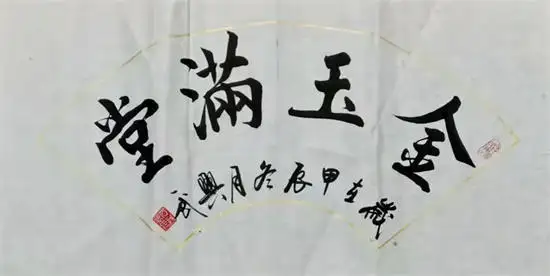 金玉滿堂
歲在甲辰冬月興